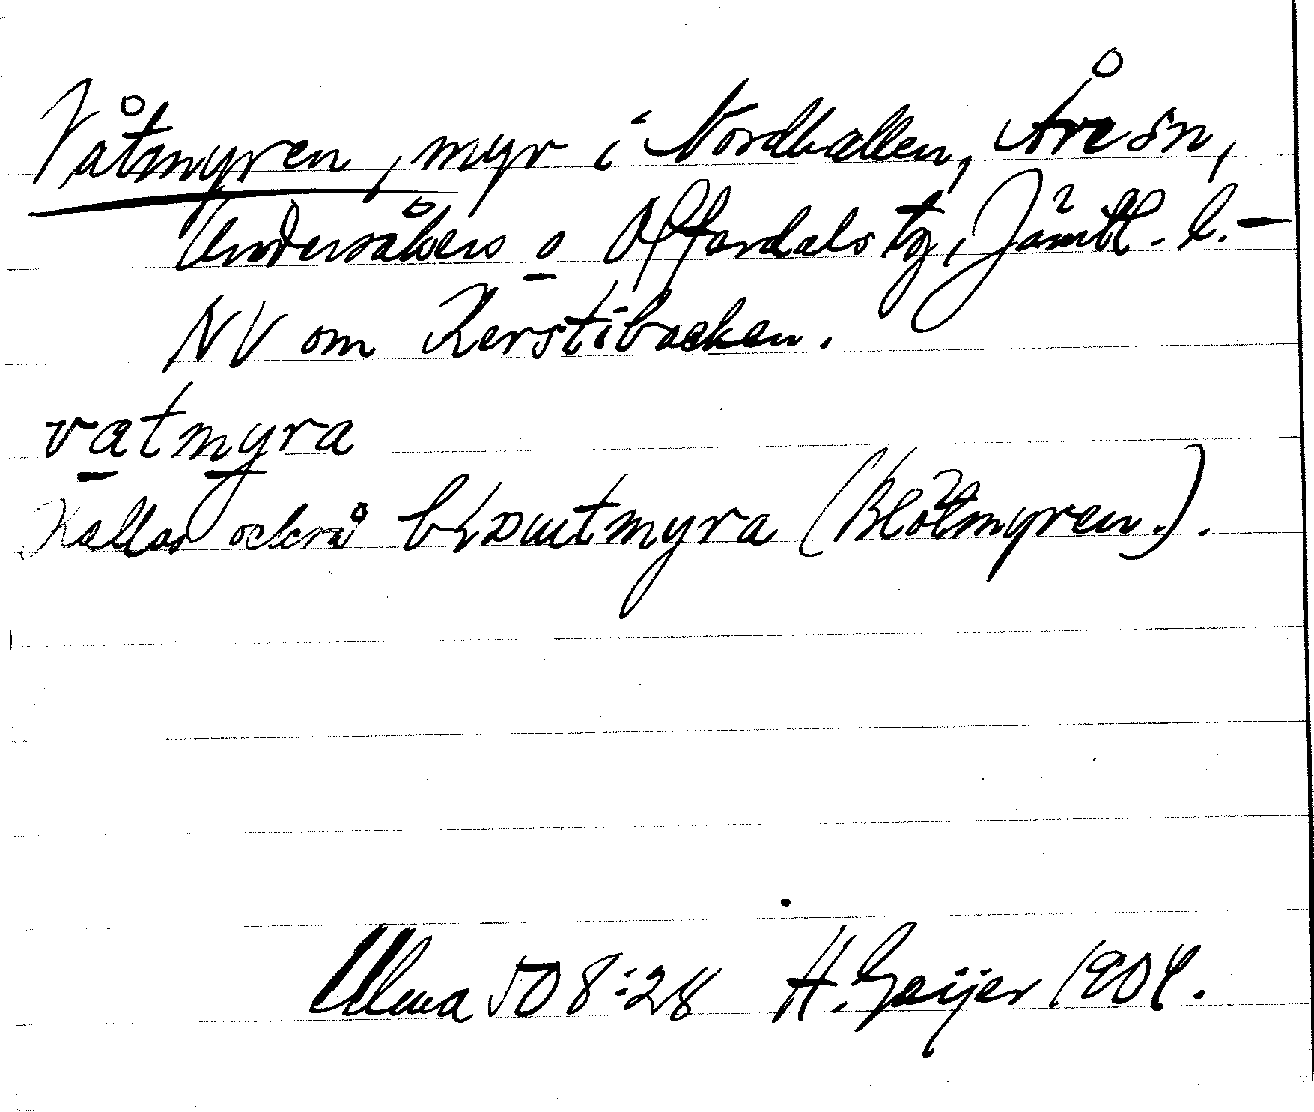 Våtmyren, myr i Nordhallen, Åre sn,
Undersåkers o Offerdals tg, Jämtl. l. –
NV om Kerstibacken.
vatmyra
Kallas också myra (Blötmyren.).
Ulma 508:28 H. Geijer 1904.